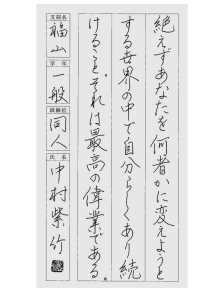 絶えずあなたを何者かに変えようと
する世界の中で自分らしくあり続
けること。それは最高の偉業である。
支部名
福山
学年
一般
段級位
同人
氏名
中村紫竹